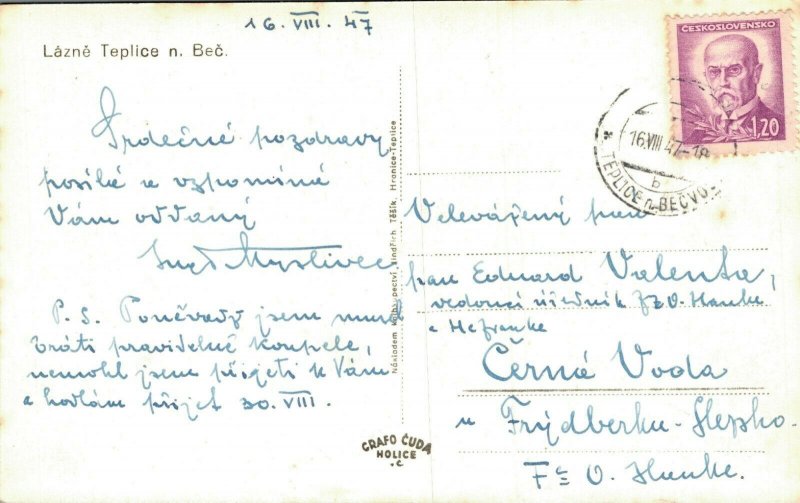 16. VIII. 47
Lázně Teplice n. Beč.
Srdečné pozdravy
posílá a vzpomíná
Vám oddaný
Myslivec
P. S. Poněvadž jsem musel
bráti pravidelné koupele,
nemohl jsem přijeti k Vám
a hodlám přijet 30. VIII.
Nákladem knihkupectví Jindřich Těšík, Hranice-Teplice
GRAFO ČUDA
HOLICE
ČESKOSLOVENSKO
1,20
16.VIII.47-18
b
TEPLICE n. BEČVOU
Velevážený pan
pan Eduard Valenta,
vedoucí úředník O. Hanke
Černá Voda
u Frýdberku-Slezsko.
Fa O. Hanke.